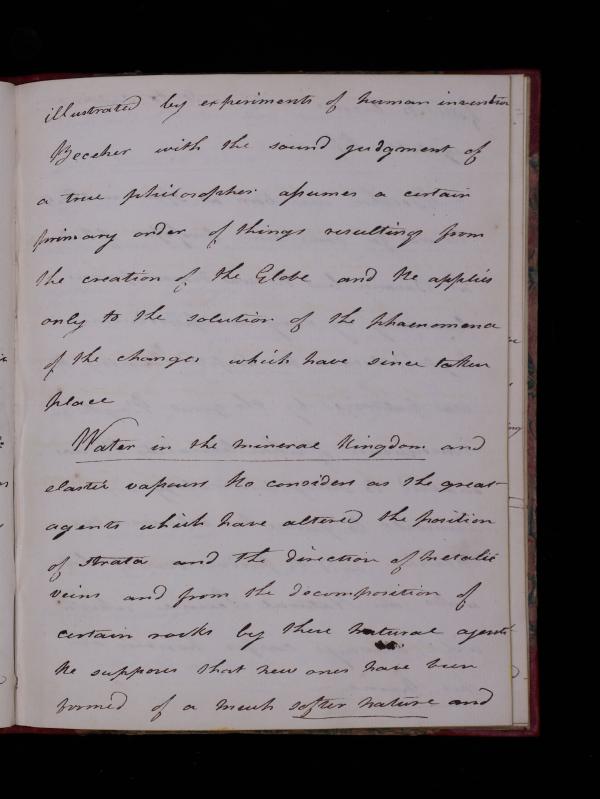 illustrated by experiments of human invention
Beccher with the sound judgment of
a true philosopher assumes a certain
primary order of things resulting from
the creation of the Globe and he applies
only to the solution of the phaenomena
of the changes which have since taken
place
Water in the mineral Kingdom and
elastic vapours he considers as the great
agents which have altered the position
of strata and the direction of metalic
veins and from the decomposition of
certain rocks by these natural agents
he supposes that new ones have been
formed of a much softer nature and